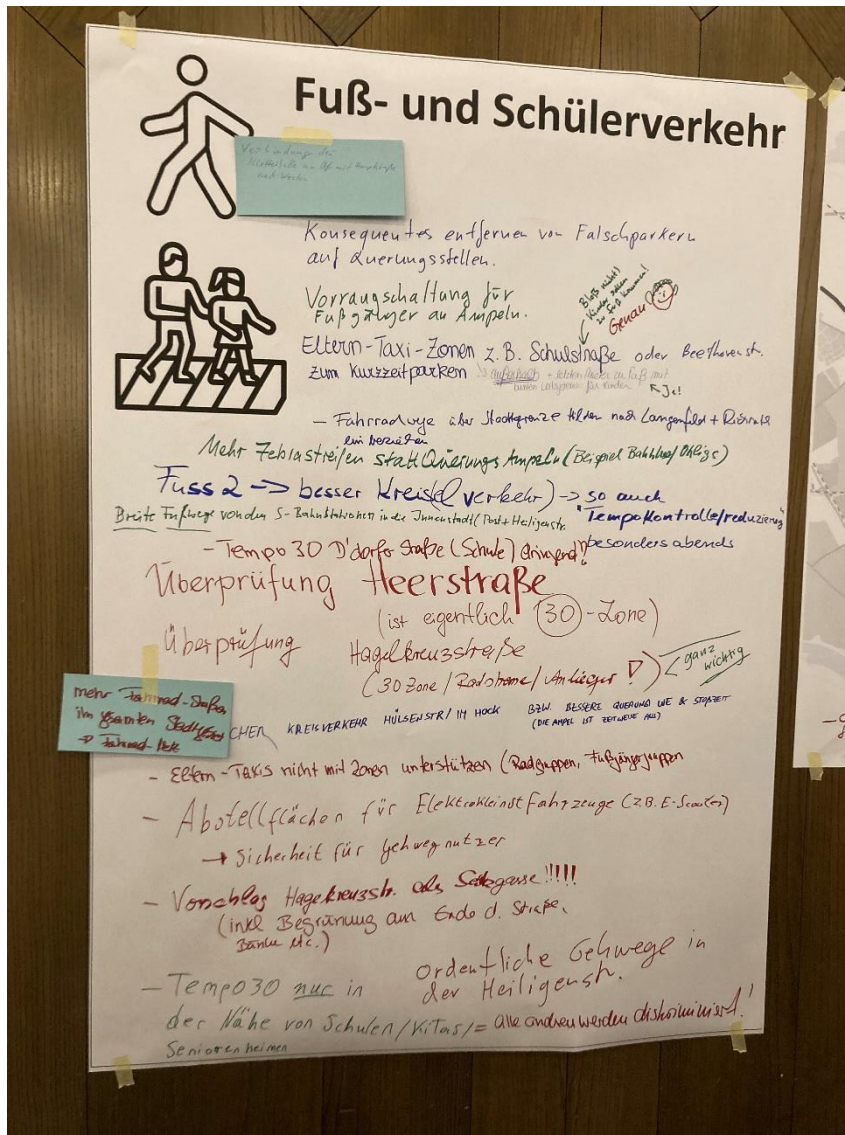 Fuß- und Schülerverkehr
Verbindung der
nach
Konsequentes entfernen von Falschparkern
auf Querungsstellen.
Vorraugschaltung für
Fußgänger an Ampeln.
Bloß nicht!
Kinder sollen
zu Fuß kommen!
Genau
Eltern-Taxi-Zonen z.B. Schulstraße oder Beethovenstr.
zum Kurzzeitparken
außerhalb + letzten Meter zu Fuß mit
für Kinder
Ja!
- Fahrradwege über Stadtgrenze Hilden nach Langenfeld + Richrath
ein beziehen
Mehr Zebrastreifen statt Querungs Ampeln (Beispiel Bahnhof Ohligs)
Fuss 2 -> besser Kreisel verkehr) -> so auch
"Tempokontrolle/reduzierung"
besonders abends
Breite Fußwege von den S-Bahnstationen in die Innenstadt (Post + Heiligenstr.
- Tempo 30 D'dorfer Straße (Schule) dringend!!
Überprüfung Heerstraße
(ist eigentlich 30-Zone)
Überprüfung Hagelkreuzstraße
(30 Zone / Radstraße / Anlieger!)
ganz
wichtig
mehr Fahrrad-Straßen
im gesamten Stadtgebiet
-> Fahrrad-
CHEN KREISVERKEHR HÜLSENSTR/ IM HOCK BZW. BESSERE QUERUNG WE & STOßZEIT
(DIE AMPEL IST ZEITWEILE AUS)
- Eltern-Taxis nicht mit Zonen unterstützen (Radgruppen, Fußgängergruppen
- Abstellflächen für Elektrokleinst Fahrzeuge (z.B. E-Scooter)
-> Sicherheit für Gehwegnutzer
- Vorschlag Hagelkreuzstr. als Sackgasse!!!!!
(inkl Begrünung am Ende d. Straße,
Bänke etc.)
ordentliche Gehwege in
der Heiligenstr.
- Tempo 30 nur in
der Nähe von Schulen/Kitas/ = alle andren werden diskriminiert!
Seniorenheimen